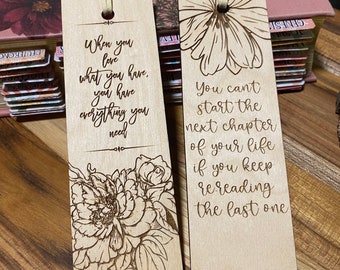 When you
love
what you have,
you have
everything you
need
You can't
start the
next chapter
of your life
if you keep
rereading
the last one